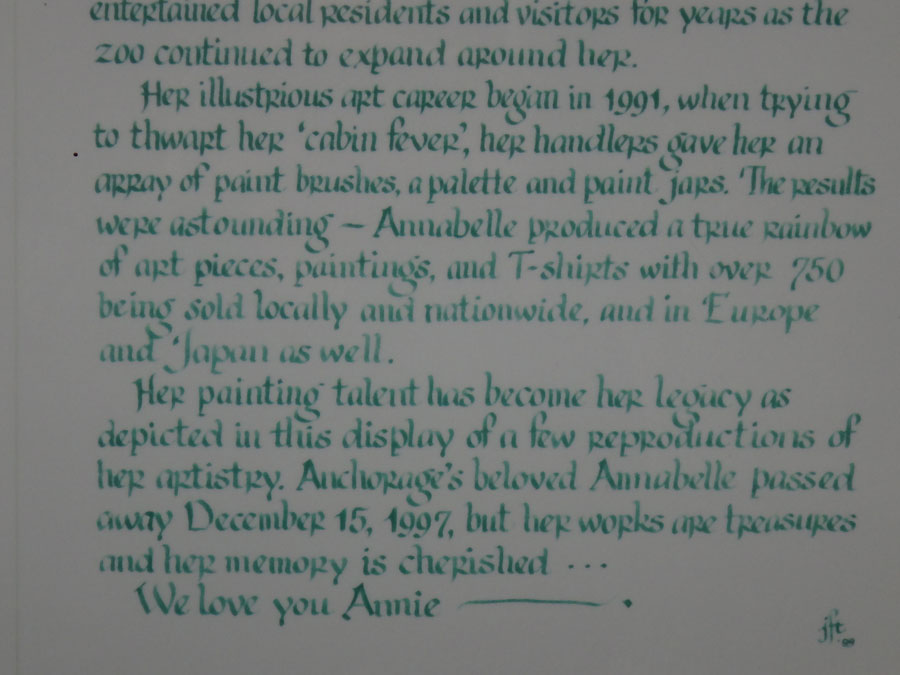 entertained local residents and visitors for years as the
zoo continued to expand around her.
Her illustrious art career began in 1991, when trying
to thwart her 'cabin fever', her handlers gave her an
array of paint brushes, a palette and paint jars. The results
were astounding – Annabelle produced a true rainbow
of art pieces, paintings, and T-shirts with over 750
being sold locally and nationwide, and in Europe
and Japan as well.
Her painting talent has become her legacy as
depicted in this display of a few reproductions of
her artistry. Anchorage's beloved Annabelle passed
away December 15, 1997, but her works are treasures
and her memory is cherished ...
We love you Annie —.
jft